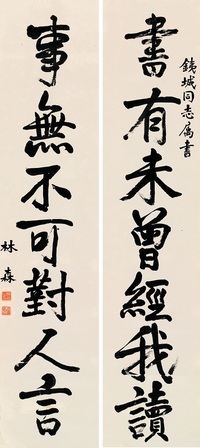 鐵城同志屬書
書有未曾經我讀
事無不可對人言
林森